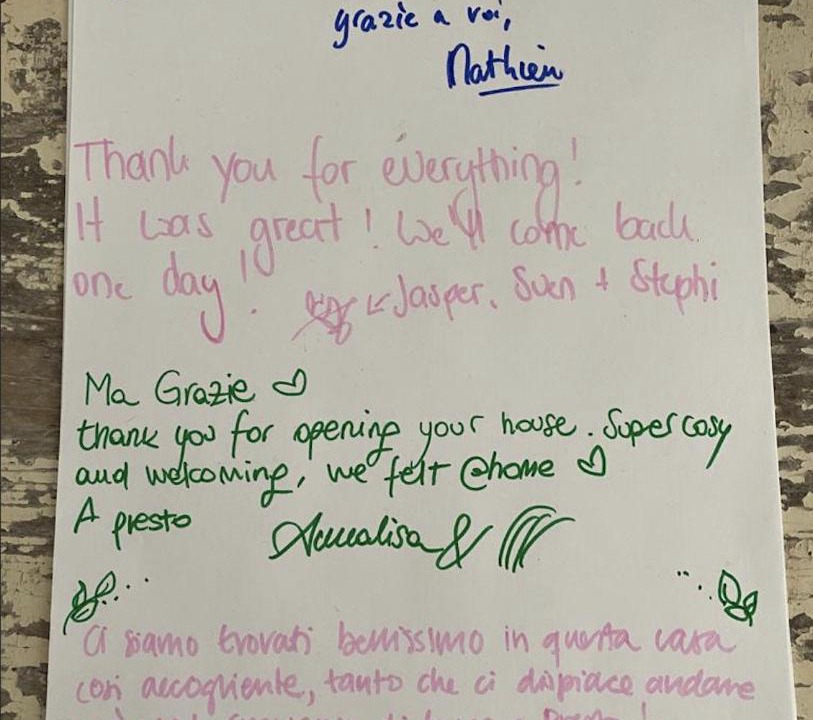 grazie a voi,
Mathieu
Thank you for everything!
It was great! We'll come back
one day!
Jasper, Sven + Stephi
Ma Grazie
thank you for opening your house. Super cosy
and welcoming, we felt @home
A presto
Annalisa &
Ci siamo trovati benissimo in questa casa
così accogliente, tanto che ci dispiace andare